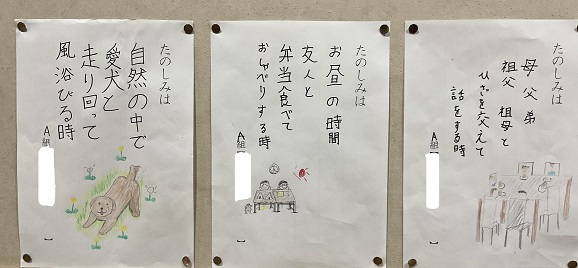 たのしみは
母父弟
祖父 祖母と
ひざを交えて
話をする時
A組 】
たのしみは
お昼の時間
友人と
弁当食べて
おしゃべりする時
A組 】
たのしみは
自然の中で
愛犬と
走り回って
風浴びる時
A組 】